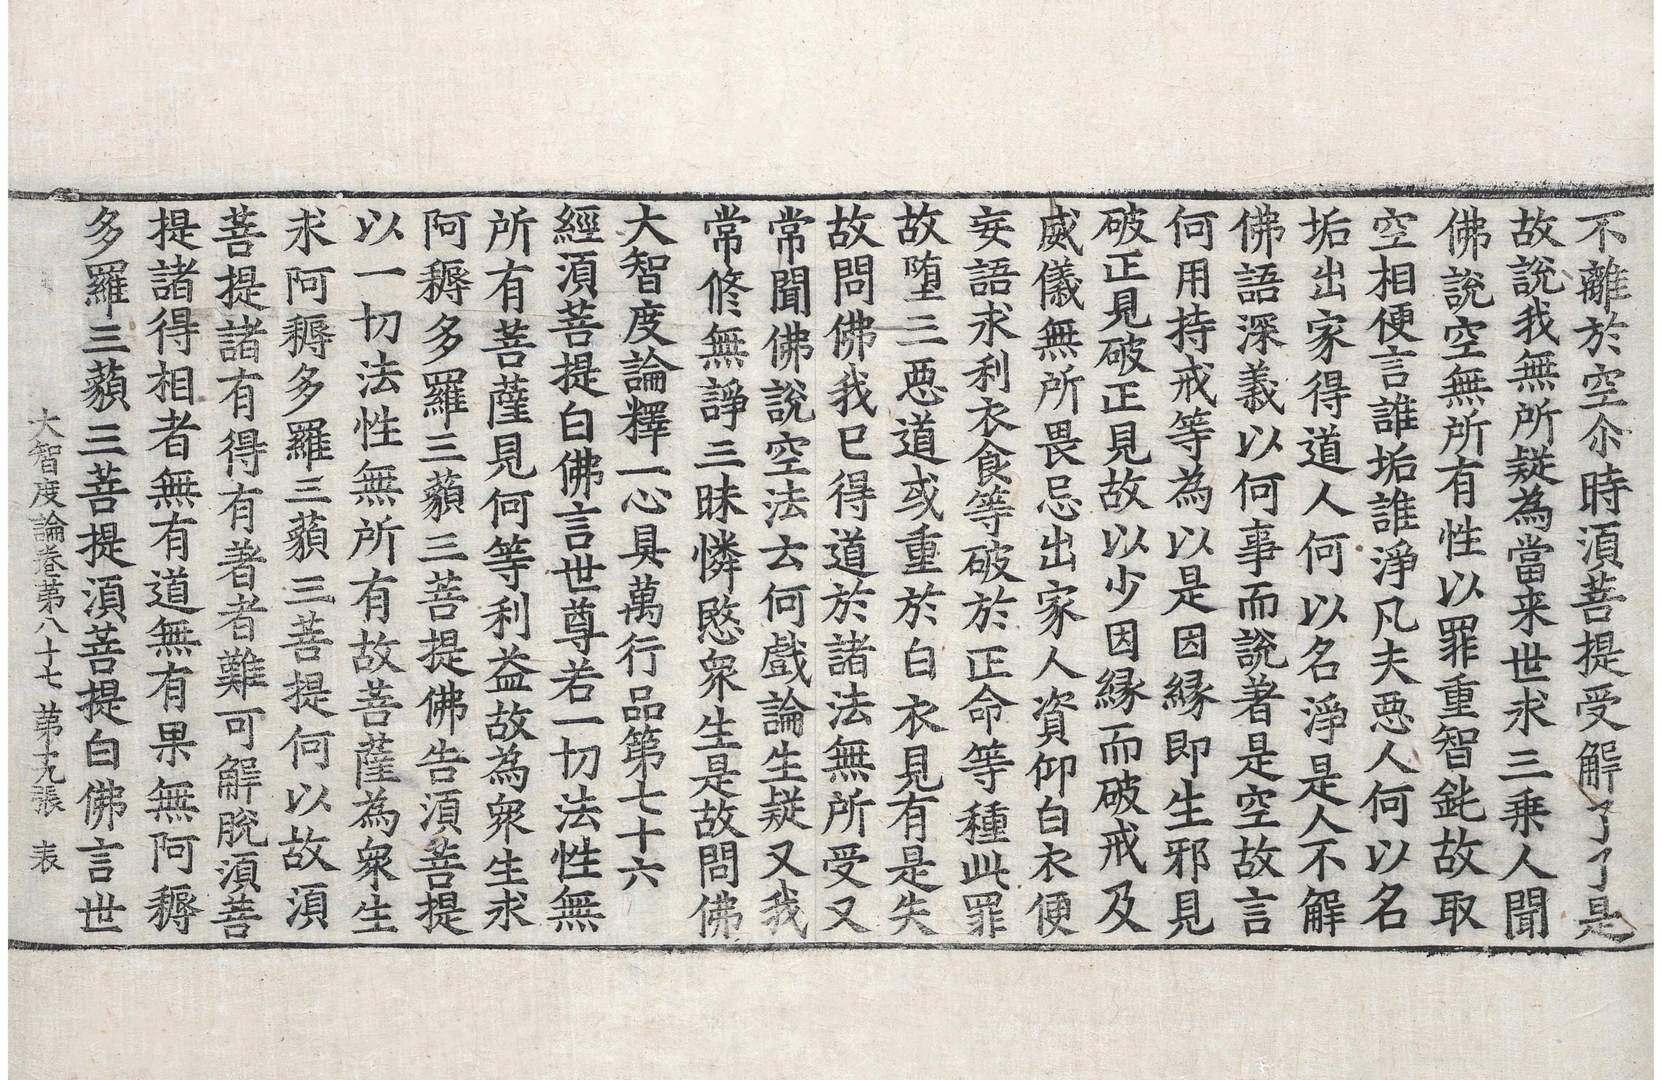 不離於空尒時湏菩提受解了了是
故說我無所疑為當来世求三乗人聞
佛說空無所有性以罪重智鈍故取
空相便言誰垢誰淨凡夫惡人何以名
垢出家得道人何以名淨是人不解
佛語深義以何事而說著是空故言
何用持戒等為以是因縁即生邪見
破正見破正見故以少因縁而破戒及
威儀無所畏忌出家人資仰白衣便
妄語求利衣食等破於正命等種此罪
故墮三惡道或重於白衣見有是失
故問佛我已得道於諸法無所受又
常聞佛說空法云何戲論生疑又我
常修無諍三昧憐愍衆生是故問佛
大智度論釋一心具萬行品第七十六
經湏菩提白佛言世尊若一切法性無
所有菩薩見何等利益故為衆生求
阿耨多羅三藐三菩提佛告湏菩提
以一切法性無所有故菩薩為衆生
求阿耨多羅三藐三菩提何以故湏
菩提諸有得有著者難可解脫湏菩
提諸得相者無有道無有果無阿耨
多羅三藐三菩提湏菩提白佛言世
大智度論卷苐八十七 苐十九張 表